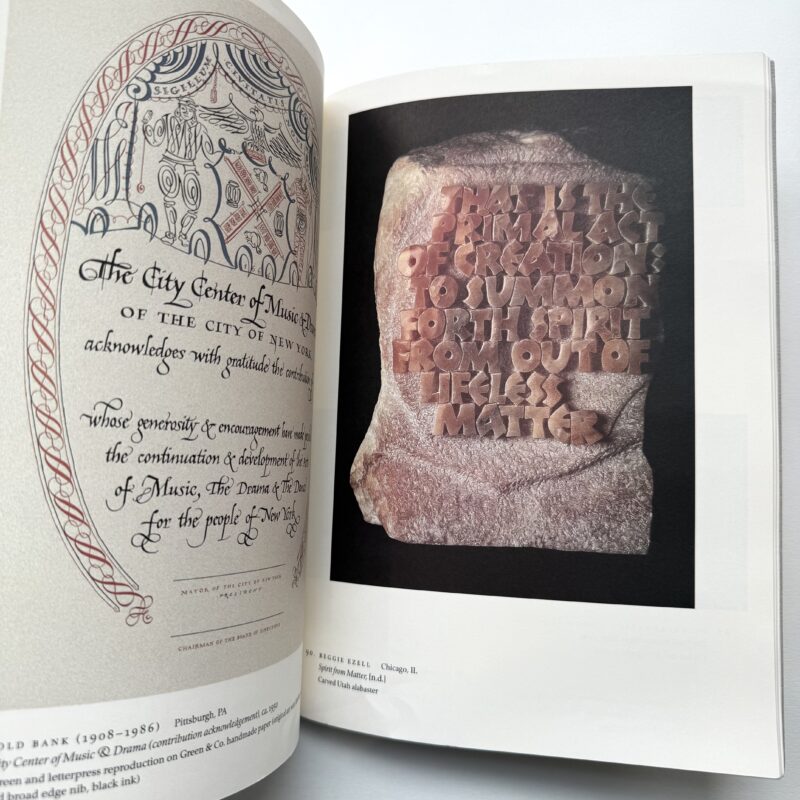 SIGILLUM CIVITATIS
The City Center of Music & Dra
OF THE CITY OF NEW YORK
acknowledges with gratitude the contribution
whose generosity & encouragement have made
the continuation & development of the
of Music, The Drama & The Da
for the people of New York
MAYOR OF THE CITY OF NEW YORK
PRESIDENT
CHAIRMAN OF THE BOARD OF DIRECTORS
OLD BANK (1908–1986) Pittsburgh, PA
ity Center of Music & Drama (contribution acknowledgement), ca. 1950
reen and letterpress reproduction on Green & Co. handmade paper (original art
d broad edge nib, black ink)
THAT IS THE
PRIMAL ACT
OF CREATION:
TO SUMMON
FORTH SPIRIT
FROM OUT OF
LIFELESS
MATTER
90. REGGIE EZELL Chicago, IL
Spirit from Matter, [n.d.]
Carved Utah alabaster